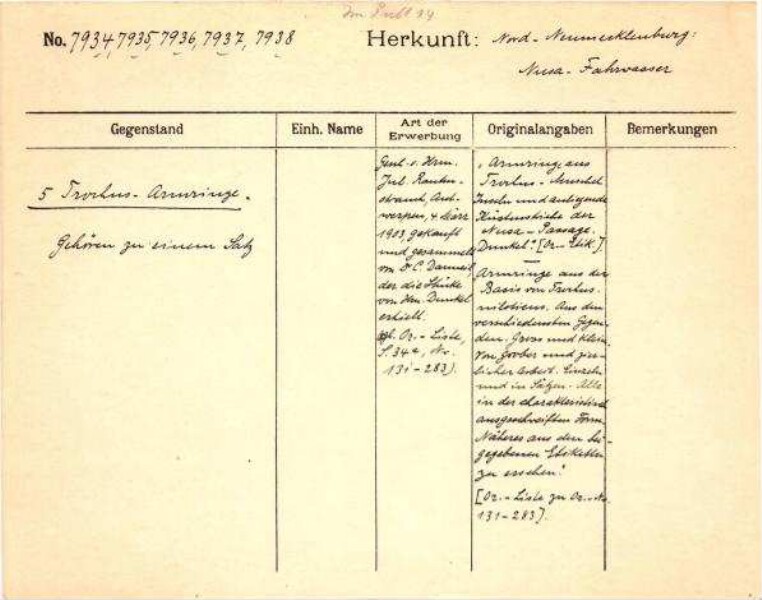 No. 7934, 7935, 7936, 7937, 7938
Herkunft: Nord-Neumecklenburg:
Nusa-Fahrwasser
Gegenstand
Einh. Name
Art der
Erwerbung
Originalangaben
Bemerkungen
5 Trochus-Armringe.
Gehören zu einem Satz
Gesch. v. Hrn.
Jul. Rauten-
strauch, Ant-
werpen, 4. März
1903, gekauft
und gesammelt
von Dr. C. Danneil,
der die Stücke
von Hrn. Dunkel
erhielt.
vgl. Or.-Liste,
S. 34a, No.
131-283).
"Armringe aus
Trochus-Muschel
Inseln und anliegende
Küstenstriche der
Nusa-Passage.
Dunkel". [Or.-Etik.].
"Armringe aus der
Basis von Trochus
niloticus. Aus den
verschiedensten Gegen-
den. Gross und klein.
Von grober und zier-
licher Arbeit. Einzeln
und in Sätzen. Alle
in der charakteristisch
ausgeschweiften Form.
Näheres aus den bei-
gegebenen Etiketten
zu ersehen."
[Or.-Liste zu Or.-No.
131-283].